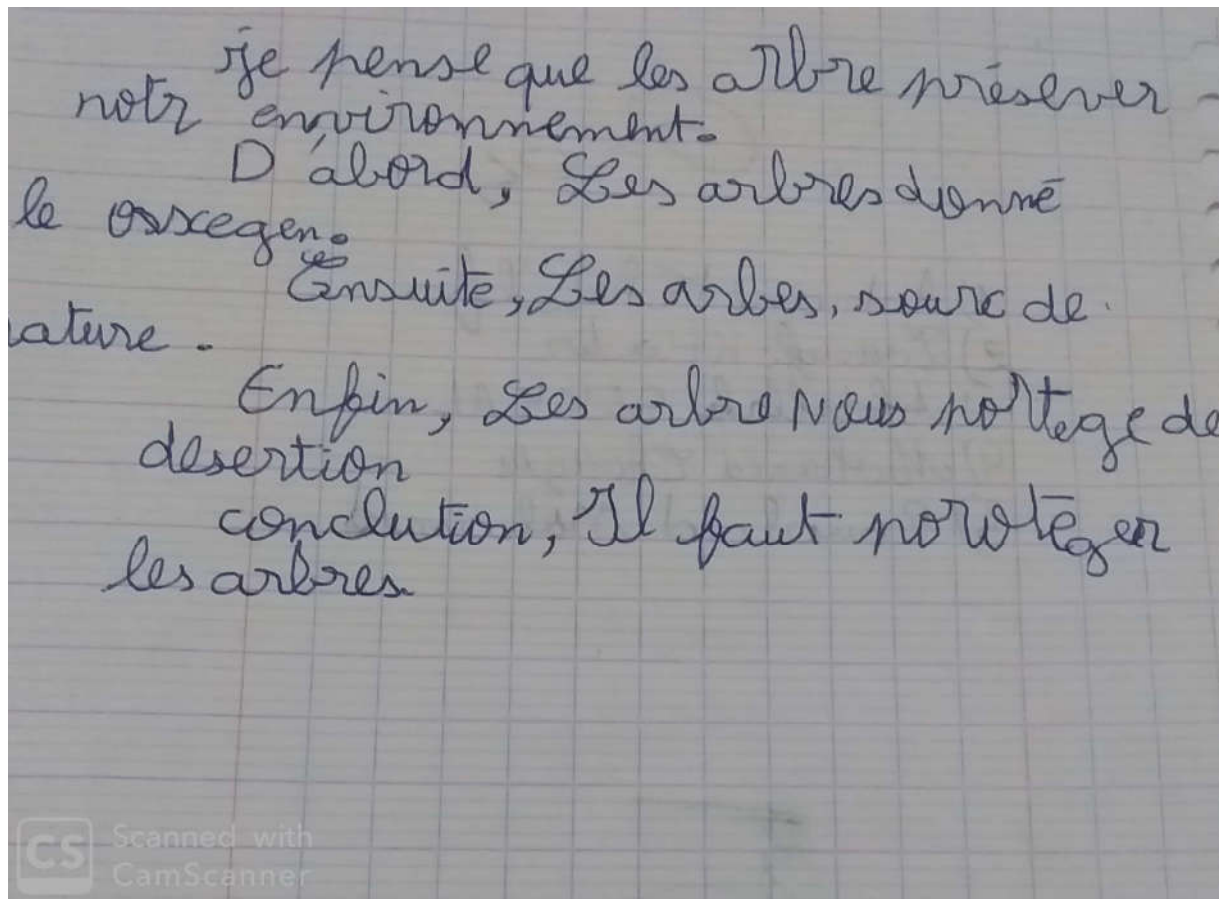 je pense que les arbre préserver
notr environnement.
D'abord, Les arbres donné
le oxxegen.
Ensuite, Les arbes, sourc de
ature.
Enfin, Les arbre Nous portege de
desertion
conclution, Il faut porotéger
les arbres.
CS Scanned with
CamScanner